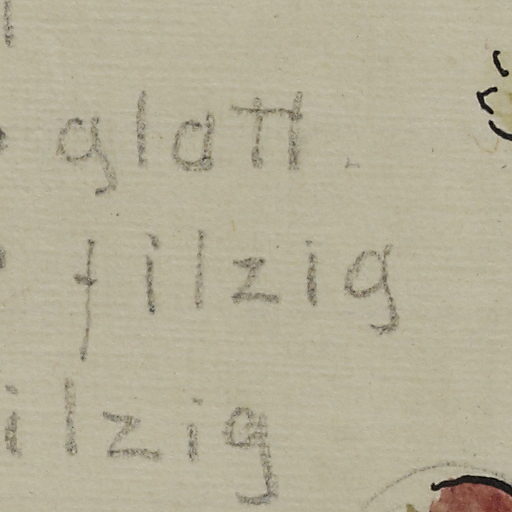 glatt.
filzig
ilzig